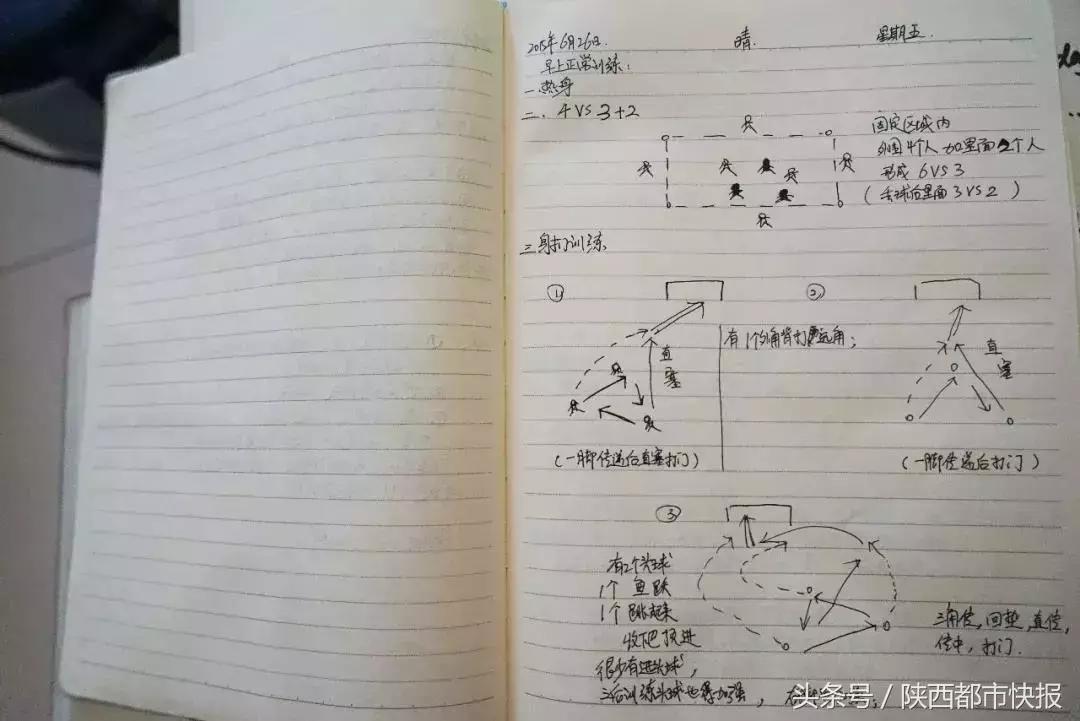 2015年6月26日. 晴. 星期五.
早上正常训练:
一.热身
二. 4 VS 3+2
固定区域内
外围4个人加里面2个人
形成 6 VS 3
(丢球后里面 3 VS 2)
三.射打训练
①
直塞
(一脚传递后直塞打门)
有1个外脚背打远角;
②
直塞
(一脚传递后打门)
③
有2个头球
1个 鱼跃
1个 跳起来
收下巴顶进
很少有进头球,
三角传,回垫,直传,
传中,打门.
头球也得加强,
头条号/陕西都市快报